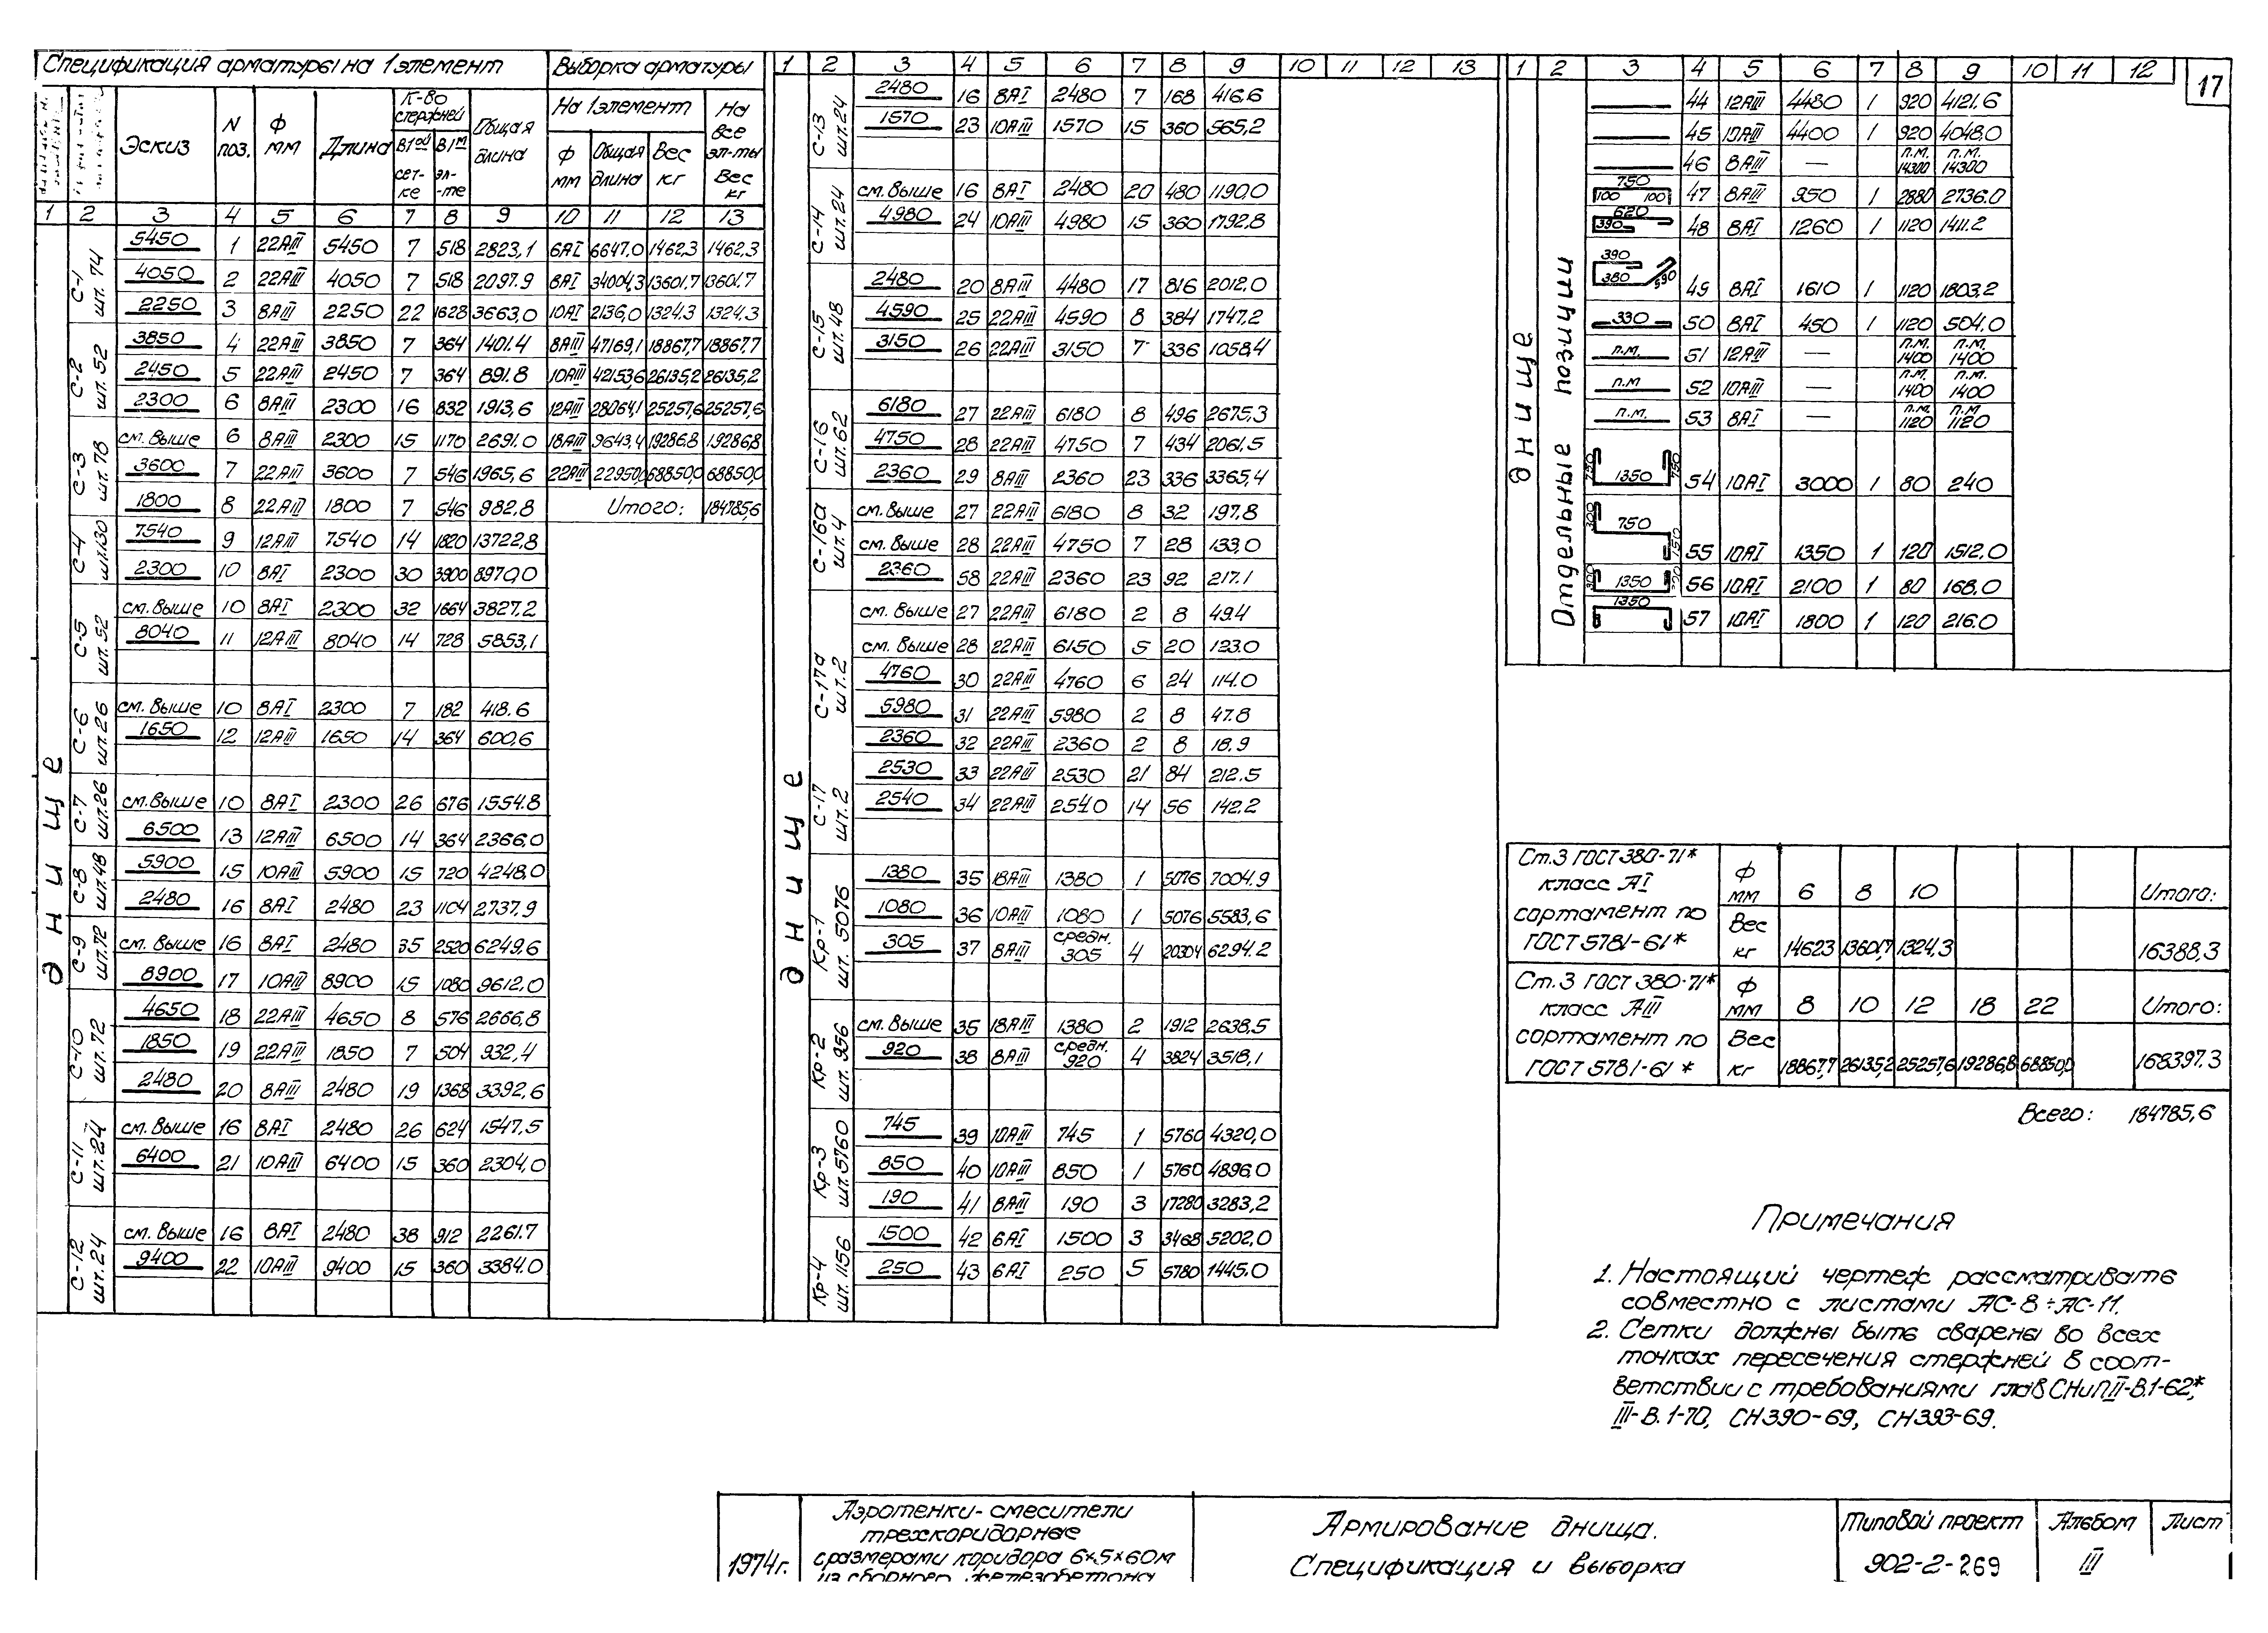 17
Спецификация арматуры на 1 элемент
Выборка арматуры
Эскиз | N поз. | Ф мм | Длина | К-во стержней | Общая длина | На 1 элемент | На все эл-ты Вес кг
В 1ой сет-ке | В 1м эл-те | Ф мм | Общая длина | Вес кг
1 2 3 4 5 6 7 8 9 10 11 12 13
днище
С-1 шт. 74
5450 1 22АIII 5450 7 518 2823,1 6АI 6647.0 1462,3 1462,3
4050 2 22АIII 4050 7 518 2097.9 8АI 34004,3 13601.7 13601.7
2250 3 8АIII 2250 22 1628 3663,0 10АI 2136,0 1324.3 1324.3
С-2 шт. 52
3850 4 22АIII 3850 7 364 1401.4 8АIII 47169,1 18867,7 18867,7
2450 5 22АIII 2450 7 364 891.8 10АIII 42153,6 26135,2 26135,2
2300 6 8АIII 2300 16 832 1913,6 12АIII 28064,1 25257,6 25257,6
С-3 шт. 78
см. выше 6 8АIII 2300 15 1170 2691.0 18АIII 9643,4 19286.8 19286,8
3600 7 22АIII 3600 7 546 1965,6 22АIII 22950,0 68850,0 68850,0
1800 8 22АIII 1800 7 546 982,8 Итого: 184785,6
С-4 шт.130
7540 9 12АIII 7540 14 1820 13722,8
2300 10 8АI 2300 30 3900 8970,0
С-5 шт. 52
см. выше 10 8АI 2300 32 1664 3827,2
8040 11 12АIII 8040 14 728 5853,1
С-6 шт. 26
см. выше 10 8АI 2300 7 182 418.6
1650 12 12АIII 1650 14 364 600,6
С-7 шт.26
см. выше 10 8АI 2300 26 676 1554.8
6500 13 12АIII 6500 14 364 2366,0
С-8 шт.48
5900 15 10АIII 5900 15 720 4248,0
2480 16 8АI 2480 23 1104 2737.9
С-9 шт.72
см. выше 16 8АI 2480 35 2520 6249.6
8900 17 10АIII 8900 15 1080 9612,0
С-10 шт. 72
4650 18 22АIII 4650 8 576 2666,8
1850 19 22АIII 1850 7 504 932,4
2480 20 8АIII 2480 19 1368 3392,6
С-11 шт.24
см. выше 16 8АI 2480 26 624 1547,5
6400 21 10АIII 6400 15 360 2304,0
С-12 шт.24
см. выше 16 8АI 2480 38 912 2261.7
9400 22 10АIII 9400 15 360 3384.0
1 2 3 4 5 6 7 8 9 10 11 12 13
днище
С-13 шт.24
2480 16 8АI 2480 7 168 416.6
1570 23 10АIII 1570 15 360 565,2
С-14 шт.24
см. выше 16 8АI 2480 20 480 1190,0
4980 24 10АIII 4980 15 360 1792.8
С-15 шт.48
2480 20 8АIII 4480 17 816 2012.0
4590 25 22АIII 4590 8 384 1747.2
3150 26 22АIII 3150 7 336 1058,4
С-16 шт.62
6180 27 22АIII 6180 8 496 2675.3
4750 28 22АIII 4750 7 434 2061,5
2360 29 8АIII 2360 23 336 3365,4
С-16а шт. 4
см. выше 27 22АIII 6180 8 32 197.8
см. выше 28 22АIII 4750 7 28 133,0
2360 58 22АIII 2360 23 92 217.1
С-17а шт.2
см. выше 27 22АIII 6180 2 8 49.4
см. выше 28 22АIII 6150 5 20 123.0
4760 30 22АIII 4760 6 24 114.0
5980 31 22АIII 5980 2 8 47.8
2360 32 22АIII 2360 2 8 18.9
С-17 шт. 2
2530 33 22АIII 2530 21 84 212.5
2540 34 22АIII 2540 14 56 142.2
Кр-1 шт. 5076
1380 35 18АIII 1380 1 5076 7004.9
1080 36 10АIII 1080 1 5076 5583,6
305 37 8АIII средн. 305 4 20304 6294.2
Кр-2 шт. 956
см. выше 35 18АIII 1380 2 1912 2638.5
920 38 8АIII средн. 920 4 3824 3518,1
Кр-3 шт.5760
745 39 10АIII 745 1 5760 4320,0
850 40 10АIII 850 1 5760 4896.0
190 41 8АIII 190 3 17280 3283,2
Кр-4 шт. 1156
1500 42 6АI 1500 3 3468 5202,0
250 43 6АI 250 5 5780 1445.0
1 2 3 4 5 6 7 8 9 10 11 12
днище
Отдельные позиции
44 12АIII 4480 1 920 4121.6
45 10АIII 4400 1 920 4048.0
46 8АIII — п.м. 14300 п.м. 14300
750 100 100 47 8АIII 950 1 2880 2736.0
620 390 48 8АI 1260 1 1120 1411.2
390 380 590 49 8АI 1610 1 1120 1803,2
330 50 8АI 450 1 1120 504.0
п.м. 51 12АIII — п.м. 1400 п.м. 1400
п.м 52 10АIII — п.м. 1400 п.м. 1400
п.м. 53 8АI — п.м. 1120 п.м 1120
750 1350 750 54 10АI 3000 1 80 240
300 750 150 55 10АI 1350 1 120 1512.0
300 1350 56 10АI 2100 1 80 168.0
1350 57 10АI 1800 1 120 216.0
Ст.3 ГОСТ 380-71* класс АI сортамент по ГОСТ 5781-61*
Ф мм 6 8 10 Итого:
Вес кг 1462,3 13601,7 1324,3 16388,3
Ст.3 ГОСТ 380-71* класс АIII сортамент по ГОСТ 5781-61*
Ф мм 8 10 12 18 22 Итого:
Вес кг 18867,7 26135,2 25257,6 19286,8 68850,0 168397.3
Всего: 184785,6
Примечания
1. Настоящий чертеж рассматривать
совместно с листами АС-8÷АС-11.
2. Сетки должны быть сварены во всех
точках пересечения стержней в соот-
ветствии с требованиями глав СНиП II-В.1-62,*
III-В.1-70, СН390-69, СН393-69.
1974г.
Аэротенки-смесители
трехкоридорные
с размерами коридора 6×5×60м
из сборного железобетона
Армирование днища.
Спецификация и выборка
Типовой проект
902-2-269
Альбом
III
Лист